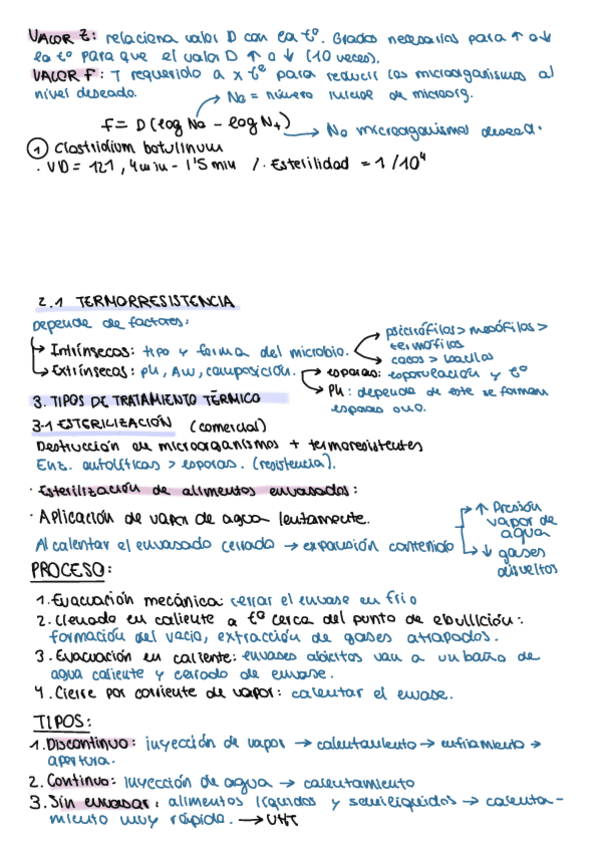 VALOR Z: relaciona valor D con la tº. Grados necesarios para ↑ o ↓
la tº para que el valor D ↑ o ↓ (10 veces).
VALOR F: T requerido a x tº para reducir los microorganismos al
nivel deseado.
No = número inicial de microorg.
F = D (log No - log Nt)
No microorganismos desead.
① Clostridium botulinum
· VD = 121, 4 min - 1'5 min / · Esterilidad = 1/10⁴
2.1 TERMORRESISTENCIA
Depende de factores:
Intrínsecos: tipo y forma del microbio.
psicrófilos > mesófilos >
termófilos
cocos > bacilos
Extrínsecos: pH, Aw, composición.
esporas: esporulación y tº
Ph: depende de este se forman
esporas o no.
3. TIPOS DE TRATAMIENTO TÉRMICO
3.1 ESTERILIZACIÓN (comercial)
Destrucción de microorganismos + termoresistentes
Enz. autolíticas > esporas. (resistencia).
· Esterilización de alimentos envasados:
· Aplicación de vapor de agua lentamente.
Al calentar el envasado cerrado → expansión contenido
↑ Presión
vapor de
agua
↓ gases
disueltos
PROCESO:
1. Evacuación mecánica: cerrar el envase en frío
2. Llenado en caliente a tº cerca del punto de ebullición:
formación del vacío, extracción de gases atrapados.
3. Evacuación en caliente: envases abiertos van a un baño de
agua caliente y cerrado de envase.
4. Cierre por corriente de vapor: calentar el envase.
TIPOS:
1. Discontinuo: inyección de vapor → calentamiento → enfriamiento →
apertura.
2. Continuo: inyección de agua → calentamiento
3. Sin envasar: alimentos líquidos y semilíquidos → calenta-
miento muy rápido. → UHT